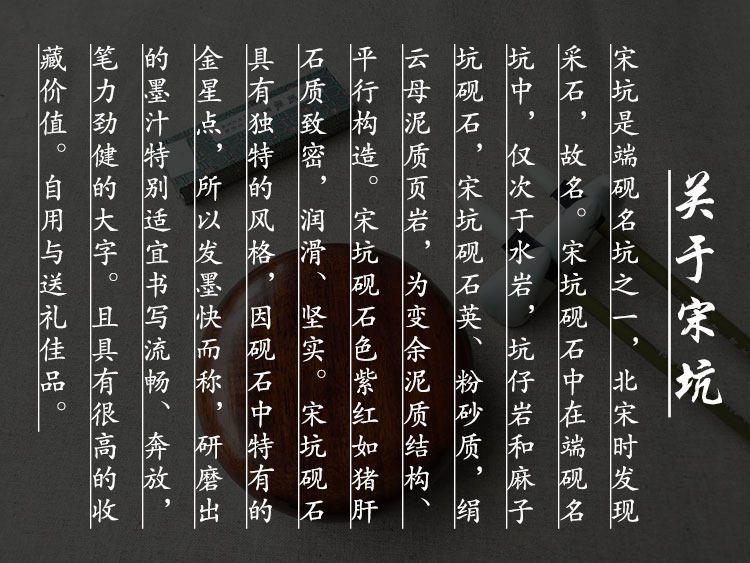 关于宋坑
宋坑是端砚名坑之一，北宋时发现
采石，故名。宋坑砚石中在端砚名
坑中，仅次于水岩，坑仔岩和麻子
坑砚石，宋坑砚石英、粉砂质，绢
云母泥质页岩，为变余泥质结构、
平行构造。宋坑砚石色紫红如猪肝
石质致密，润滑、坚实。宋坑砚石
具有独特的风格，因砚石中特有的
金星点，所以发墨快而称，研磨出
的墨汁特别适宜书写流畅、奔放，
笔力劲健的大字。且具有很高的收
藏价值。自用与送礼佳品。